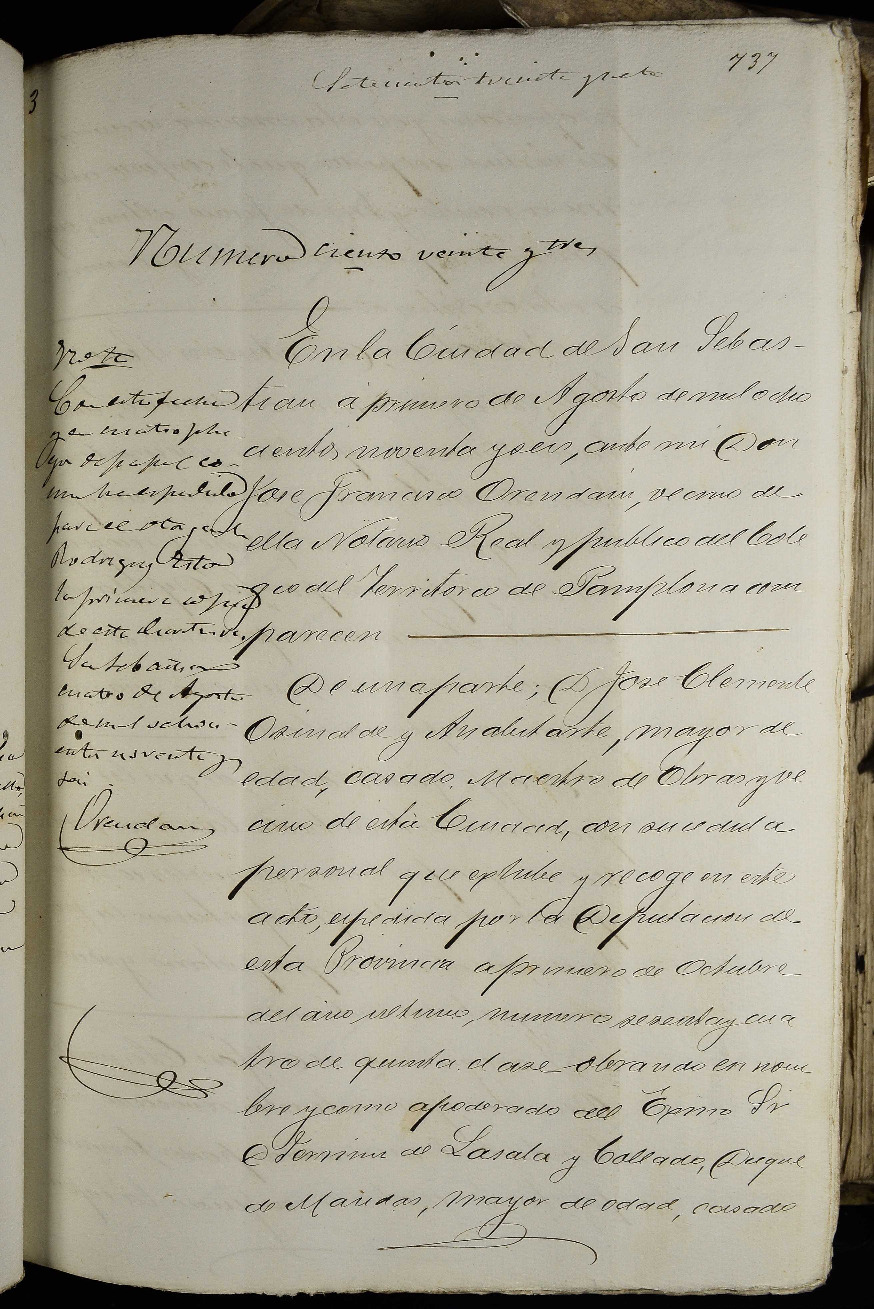 737
Setecientos treinta y siete
Numero ciento veinte y tres
En la Ciudad de San Sebas-
tian á primero de Agosto de mil ocho
cientos noventa y seis, ante mi Don
José Francisco Orendain, vecino de
ella Notario Real y publico del Cole
gio del Territorio de Pamplona com
parecen
De una parte; D José Clemente
Osinalde y Anabitarte, mayor de
edad, casado, Maestro de Obras y ve
cino de esta Ciudad, con su cedula
personal que exhibe y recoge en este
acto, espedida por la Diputacion de
esta Provincia a primero de Octubre
del año ultimo, numero sesenta y cua
tro de quinta clase obrando en nom-
bre y como apoderado del Excmo Sr
D Fermin de Lasala y Collado, Duque
de Mandas, mayor de edad, casado
Nota
Con esta fecha
y en cuatro plie
gos de papel co-
mun he espedido
para el otorgante
Rodriguez
la primera copia
de esta escritura.
San Sebastian
cuatro de Agosto
de mil ochoci-
entos noventa y
seis.
Orendain
3